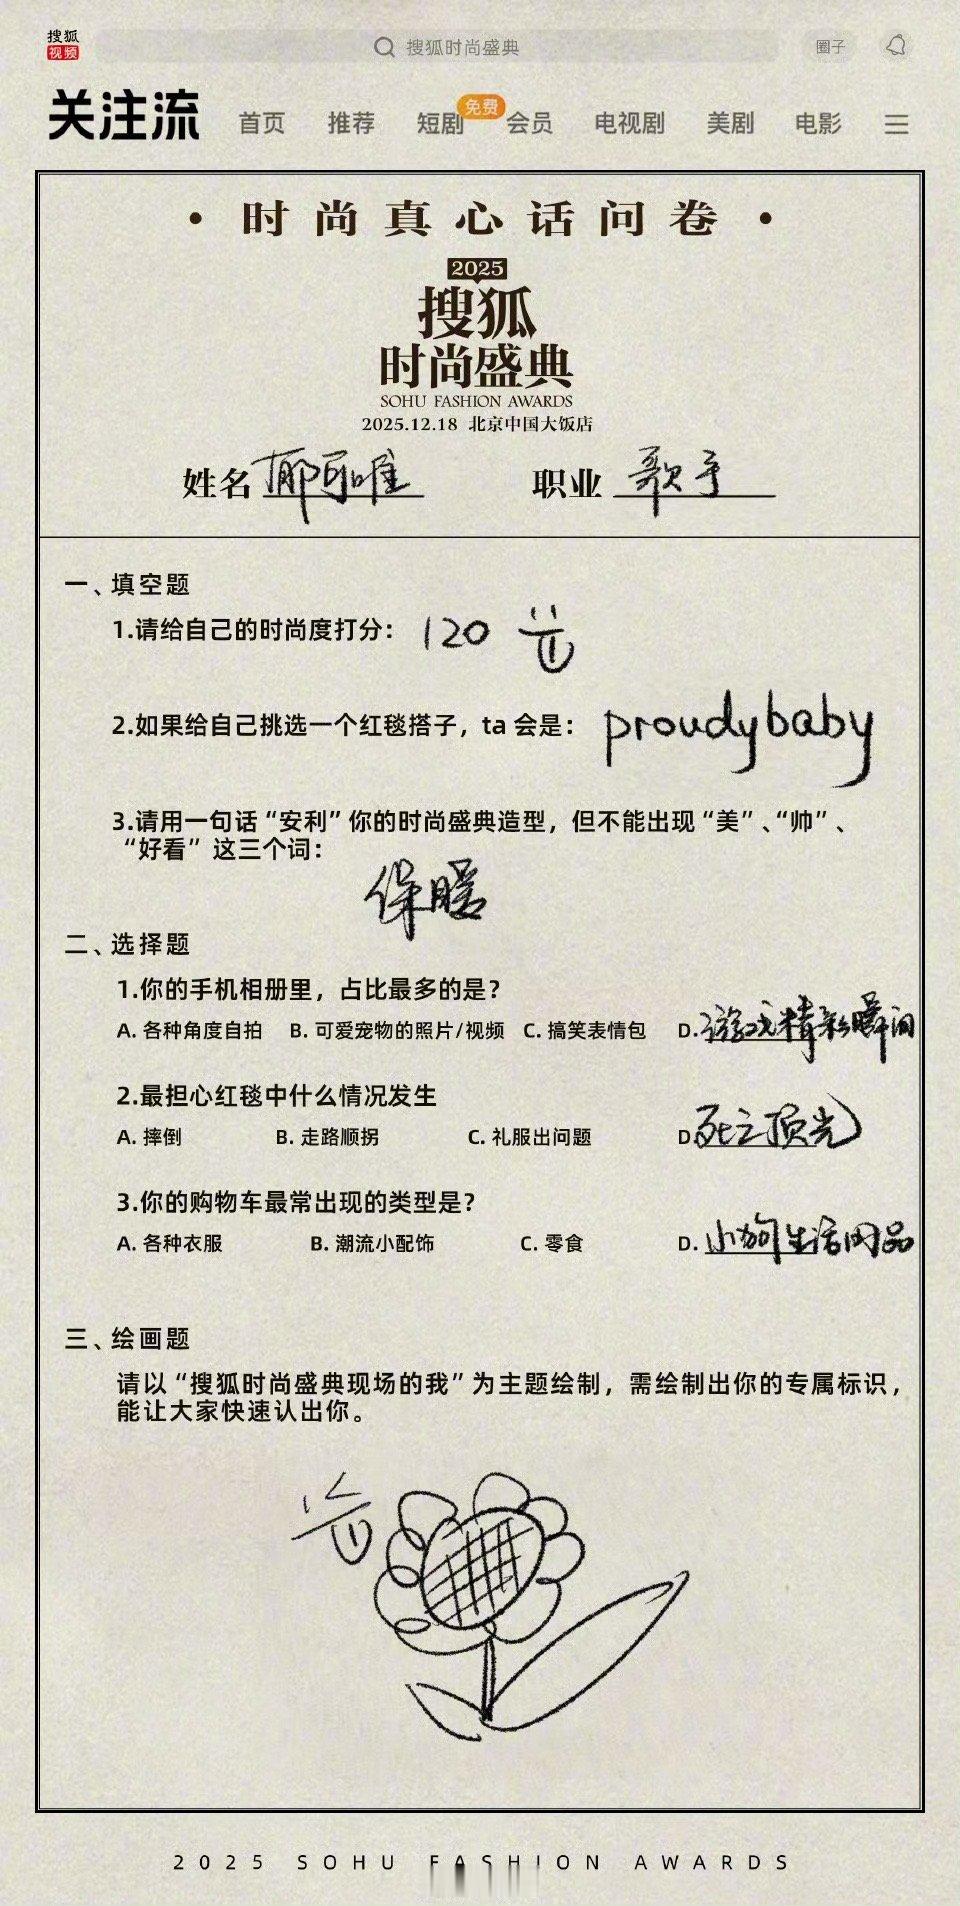 搜狐
视频
搜狐时尚盛典
圈子
关注流
首页 推荐 短剧 免费 会员 电视剧 美剧 电影
·时尚真心话问卷·
2025
搜狐
时尚盛典
SOHU FASHION AWARDS
2025.12.18 北京中国大饭店
姓名 郁可唯 职业 歌手
一、填空题
1.请给自己的时尚度打分： 120
2.如果给自己挑选一个红毯搭子，ta 会是： proudybaby
3.请用一句话“安利”你的时尚盛典造型，但不能出现“美”、“帅”、
“好看” 这三个词：
保暖
二、选择题
1.你的手机相册里，占比最多的是？
A. 各种角度自拍 B. 可爱宠物的照片/视频 C. 搞笑表情包 D. 游戏精彩瞬间
2.最担心红毯中什么情况发生
A. 摔倒 B. 走路顺拐 C. 礼服出问题 D. 死亡顶光
3.你的购物车最常出现的类型是？
A. 各种衣服 B. 潮流小配饰 C. 零食 D. 小狗生活用品
三、绘画题
请以“搜狐时尚盛典现场的我”为主题绘制，需绘制出你的专属标识，
能让大家快速认出你。
2025 SOHU FASHION AWARDS